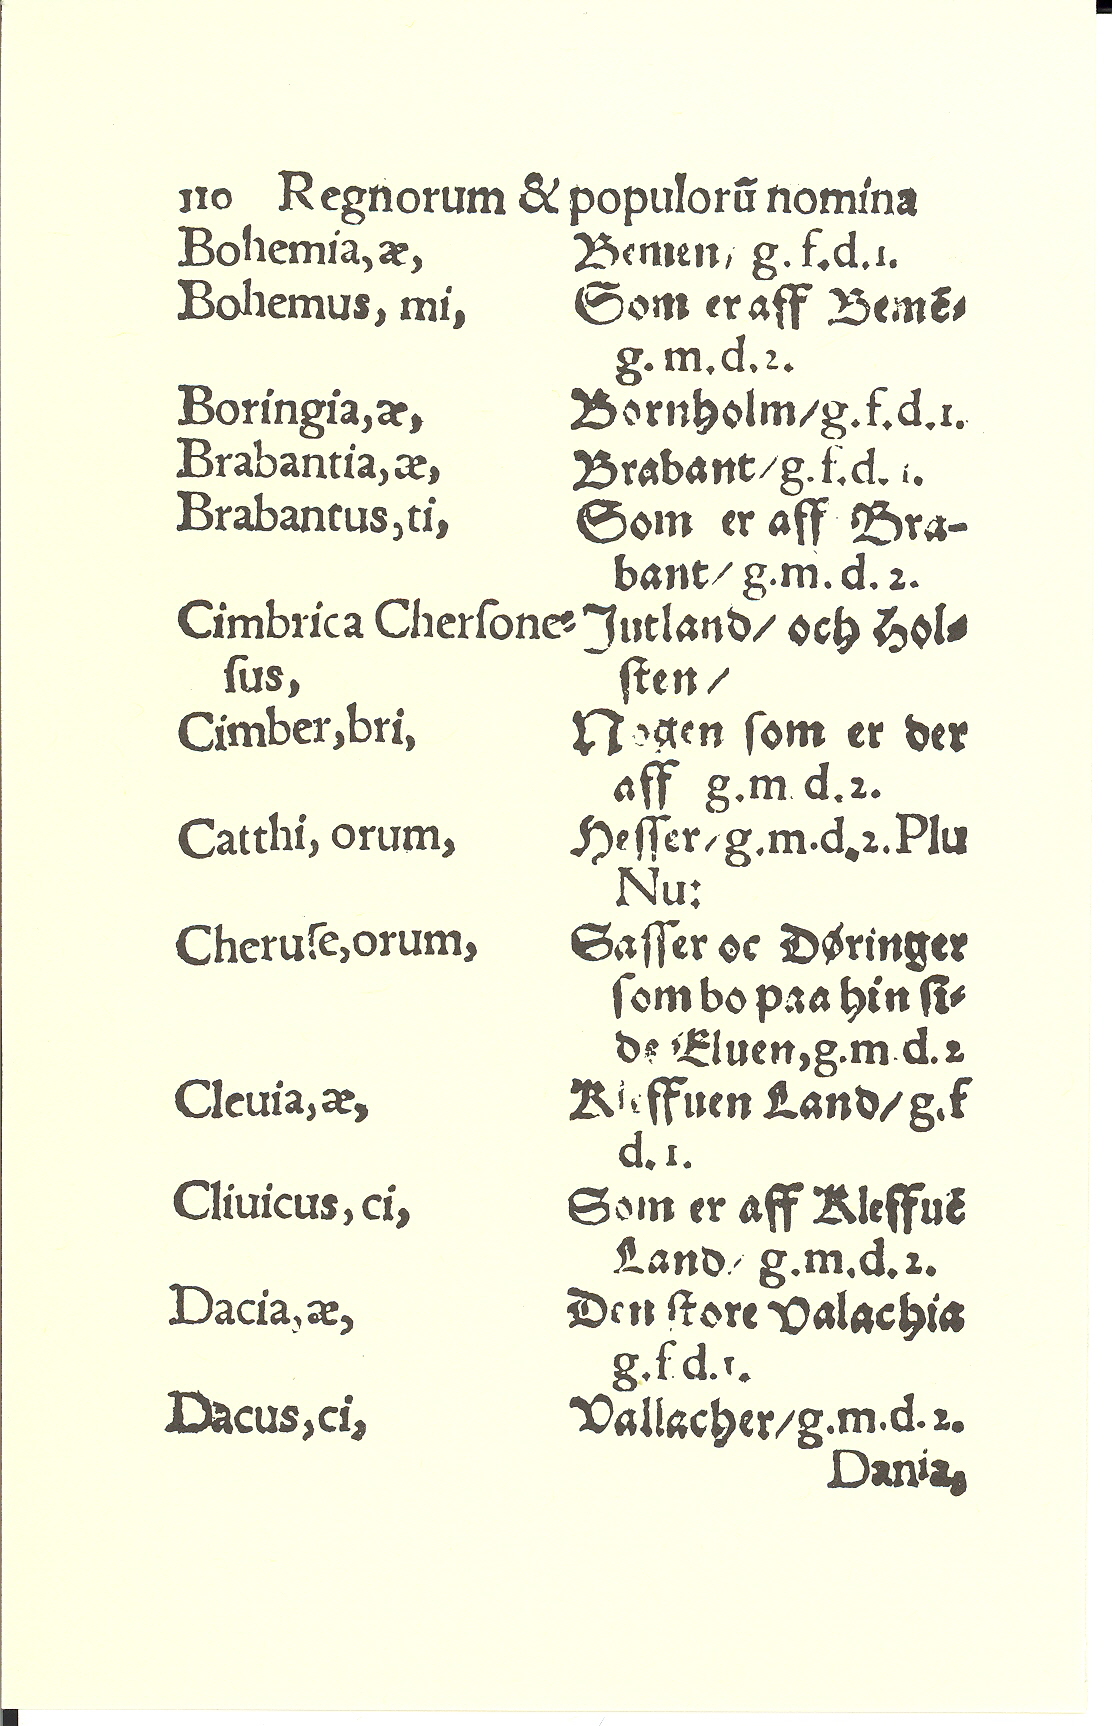 110 Regnorum & populorũ nomina
Bohemia,æ, Bemen, g. f.d.1.
Bohemus, mi, Som er aff Bemẽ⸗
g. m.d.2.
Boringia,æ, Bornholm/g.f.d.1.
Brabantia,æ, Brabant/g.f.d. 1.
Brabantus,ti, Som er aff Bra-
bant/ g.m. d. 2.
Cimbrica Cherſone⸗ Jutland/ och Hol⸗
ſus, ſten /
Cimber,bri, Nogen ſom er der
aff g.m d.2.
Catthi, orum, Heſſer/g.m.d.2.Plu
Nu:
Cheruſe,orum, Saſſer oc Døringer
ſom bo paa hin ſi⸗
de Eluen,g.m.d.2
Cleuia,æ, Kleffuen Land/g.f
d.1.
Cliuicus, ci, Som er aff Kleffuẽ
Land/ g.m.d.2.
Dacia,æ, Den ſtore Valachia
g.f d.1.
Dacus,ci, Vallacher/g.m.d.2.
Dania,